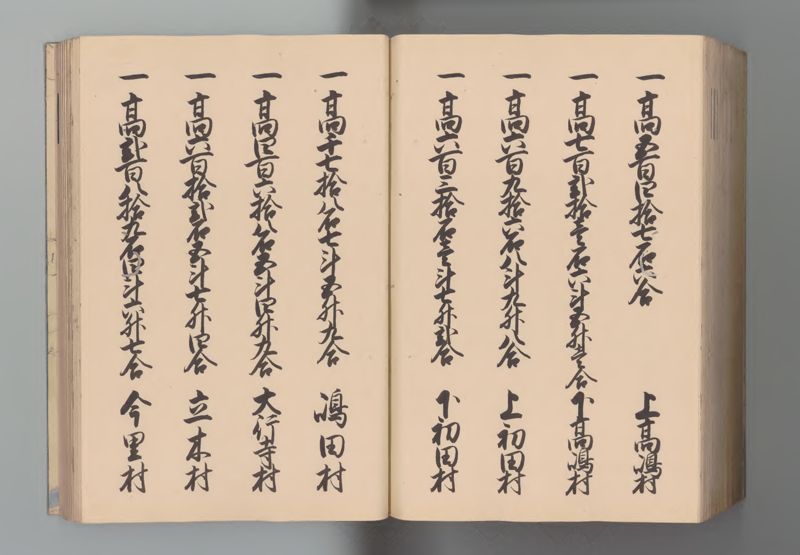 一 高五百四拾七石六合 上高嶋村
一 高七百弐拾壱石六斗五升壱合 下高嶋村
一 高六百九拾六石八斗九升八合 上初田村
一 高六百三拾石壱斗七升弐合 下初田村
一 高千七拾八石七斗五升九合 嶋田村
一 高四百六拾八石五斗四升九合 大行寺村
一 高六百拾弐石五斗七升四合 立木村
一 高弐百八拾九石四斗六升七合 今里村